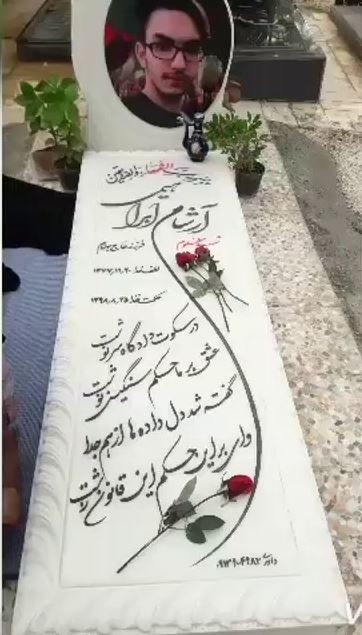 آرشام ابراهیمی
فرزند حاج بهرام
۱۳۷۷,۱۲,۲۰
۱۳۹۸,۸,۲۵
در سکوت دادگاه سرنوشت
عشق بر ما حکم سنگین نوشت
گفته شد دل داده ها از هم جدا
وای بر این حکم این قانون زشت